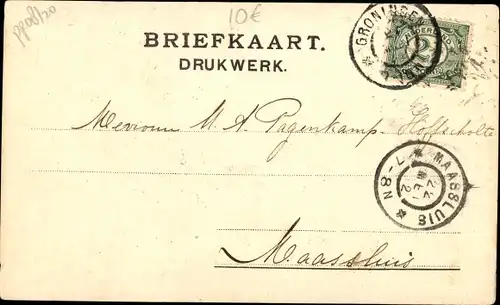 pp08/20
10€
BRIEFKAART.
DRUKWERK.
GRONINGEN
NEDERLAND
Mevrouw M A Pagenkamp-Hoffscholte
MAASSLUIS
7-8N
22
2
Maassluis